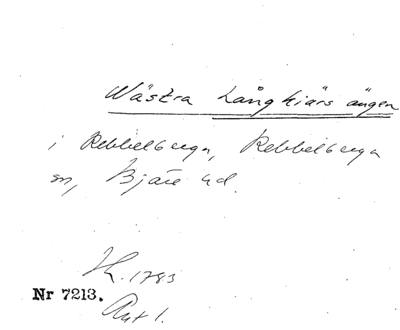 Wästra Långkiärs ängen
i Rebbelberga, Rebbelberga
sn, Bjäre hd.
Sk. 1783
Nr 7213.
Akt 1.